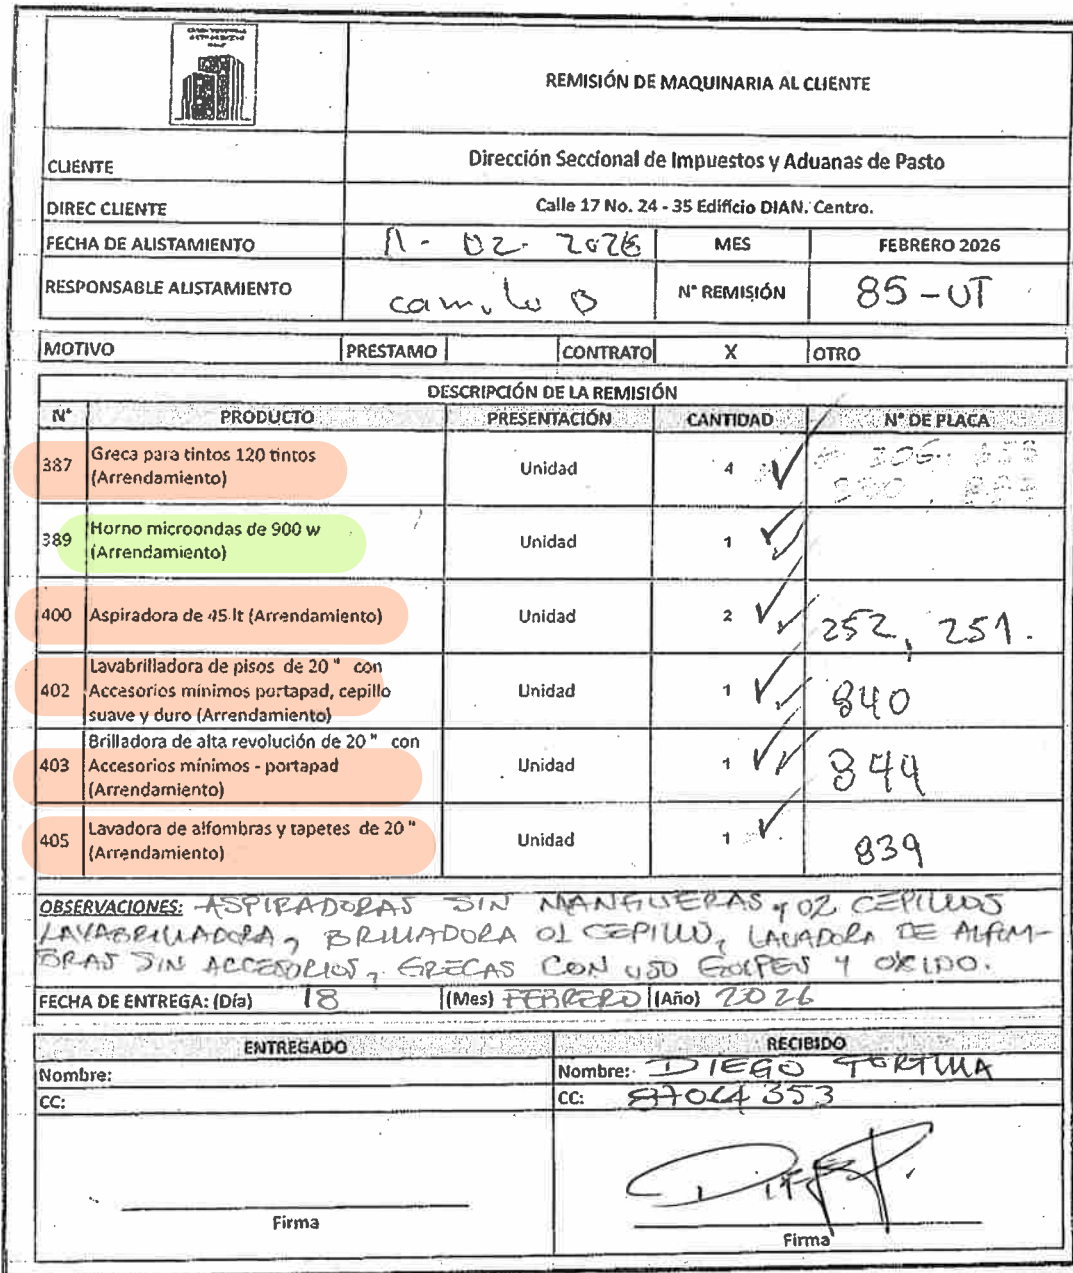 REMISIÓN DE MAQUINARIA AL CLIENTE
CLIENTE Dirección Seccional de Impuestos y Aduanas de Pasto
DIREC CLIENTE Calle 17 No. 24 - 35 Edificio DIAN. Centro.
FECHA DE ALISTAMIENTO 11-02-2026 MES FEBRERO 2026
RESPONSABLE ALISTAMIENTO camilo B N° REMISIÓN 85-UT
MOTIVO PRESTAMO CONTRATO X OTRO
DESCRIPCIÓN DE LA REMISIÓN
N° PRODUCTO PRESENTACIÓN CANTIDAD N° DE PLACA
387 Greca para tintos 120 tintos (Arrendamiento) Unidad 4
389 Horno microondas de 900 w (Arrendamiento) Unidad 1
400 Aspiradora de 45 lt (Arrendamiento) Unidad 2 252, 251.
402 Lavabrilladora de pisos de 20 " con Accesorios mínimos portapad, cepillo suave y duro (Arrendamiento) Unidad 1 840
403 Brilladora de alta revolución de 20 " con Accesorios mínimos - portapad (Arrendamiento) Unidad 1 844
405 Lavadora de alfombras y tapetes de 20 " (Arrendamiento) Unidad 1 839
OBSERVACIONES: ASPIRADORAS SIN MANGUERAS, 02 CEPILLOS
LAVABRILLADORA, BRILLADORA 01 CEPILLO, LAVADORA DE ALFOM-
BRAS SIN ACCESORIOS, GRECAS CON USO GOLPES Y OXIDO.
FECHA DE ENTREGA: (Día) 18 (Mes) FEBRERO (Año) 2026
ENTREGADO RECIBIDO
Nombre: Nombre: DIEGO
CC: CC: 87064353
Firma Firma